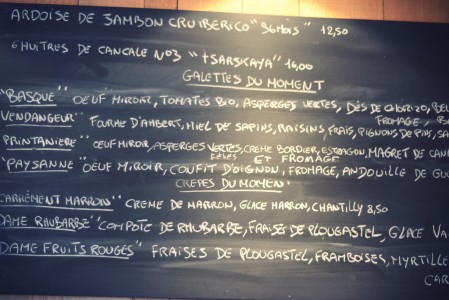 ARDOISE DE JAMBON CRU IBERICO "36 MOIS" 12,50
6 HUITRES DE CANCALE NO3 "TSARSKAYA" 14,00
GALETTES DU MOMENT
"BASQUE" OEUF MIROIR, TOMATES BIO, ASPERGES VERTES, DÈS DE CHORIZO, BEL
FROMAGE, B
VENDANGEUR" FOURME D'AMBERT, MIEL DE SAPINS, RAISINS, FRAIS, PIGNONS DE PINS, SA
PRINTANIERE" OEUF MIROIR, ASPERGES VERTES, CREME BORDIER, ESTRAGON, MAGRET DE CAN
FÈVES ET FROMAGE
"PAYSANNE" OEUF MIROIR, CONFIT D'OIGNON, FROMAGE, ANDOUILLE DE GU
CREPES DU MOMEN
CARRÉMENT MARRON" CREME DE MARRON, GLACE MARRON, CHANTILLY 8,50
DAME RHUBARBE" COMPOTE DE RHUBARBE, FRAISES DE PLOUGASTEL, GLACE VA
DAME FRUITS ROUGES" FRAISES DE PLOUGASTEL, FRAMBOISES, MYRTILLE
CAR